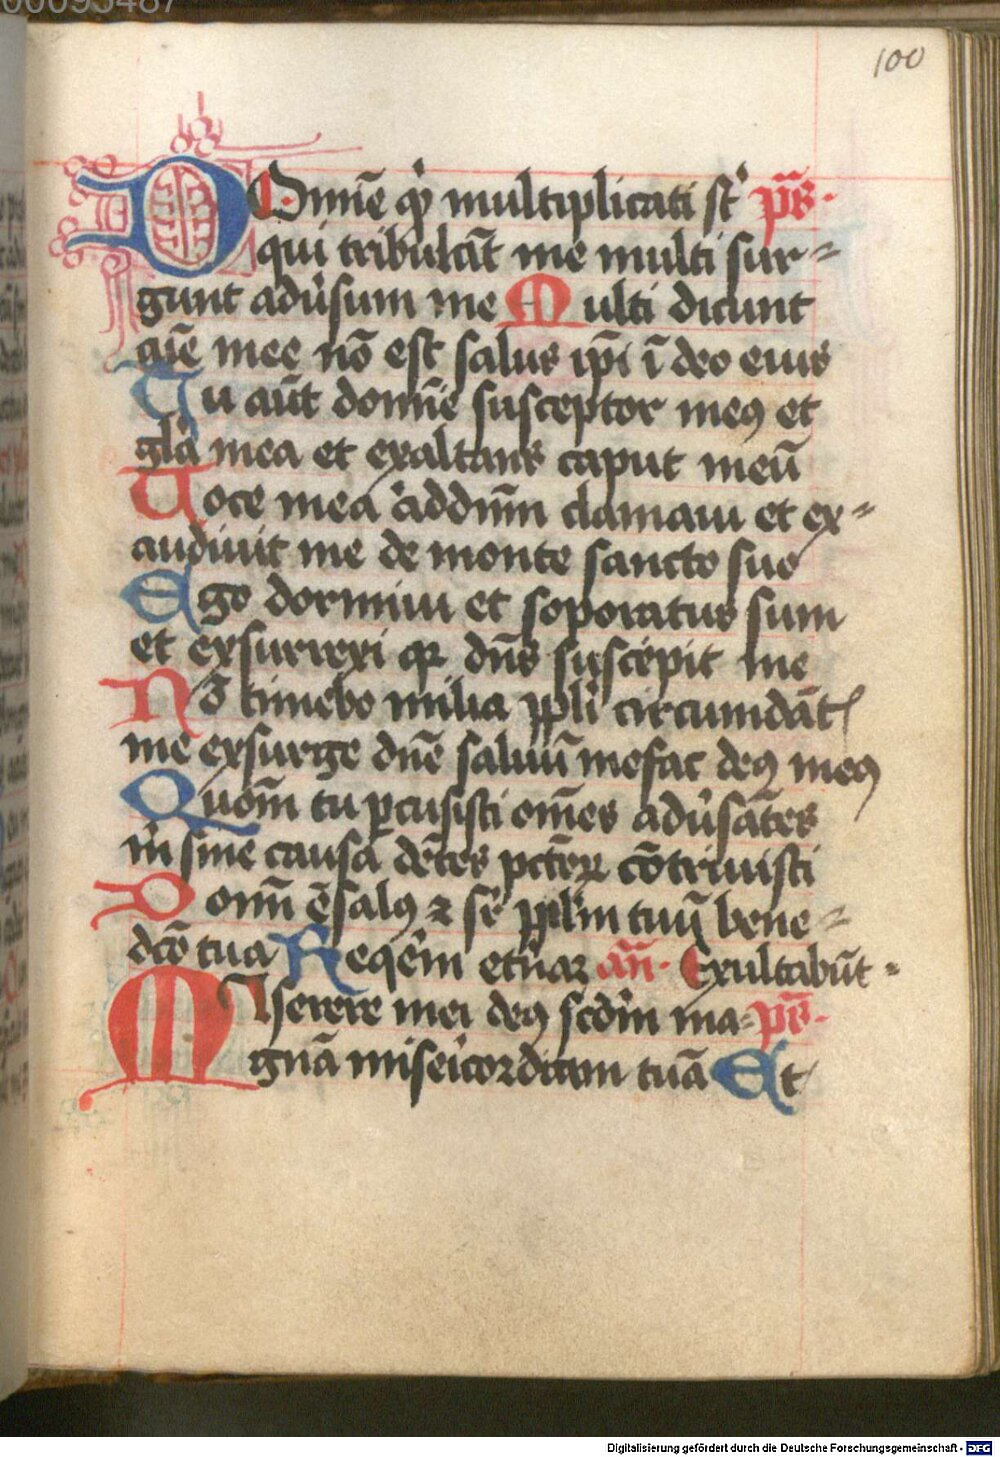 00095487
100
DOmīe qͥ multiplicati st̄ p̄s·
qui tribulāt me multi sur-
gunt adūsum me Multi dicunt
aīe mee nō est salus ip̄i ī deo eius
Tu aūt domīe susceptor meꝰ et
gl̄a mea et exaltans caput meū
Uoce mea ad dn̄m clamaui et ex-
audiuit me de monte sancto suo
Ego dormiui et soporatus sum
et exsurrexi qꝛ dn̄s suscepit me
Nō timebo milia pp̄li circumdāt
me exsurge dn̄e saluū me fac deꝰ meꝰ
Quom̄ tu ꝑcusisti om̄es adūsātes
m̄ sine causa dētes pctōꝝ cōtriuisti
Domī ē salꝰ ⁊ sr̄ pplm̄ tuū bene-
dcō tua Reqēm et̄nā an̄· Exultabūt-
MIserere mei deꝰ scd̄m ma- p̄s·
gnā misericordiam tuā Et
Digitalisierung gefördert durch die Deutsche Forschungsgemeinschaft - DFG